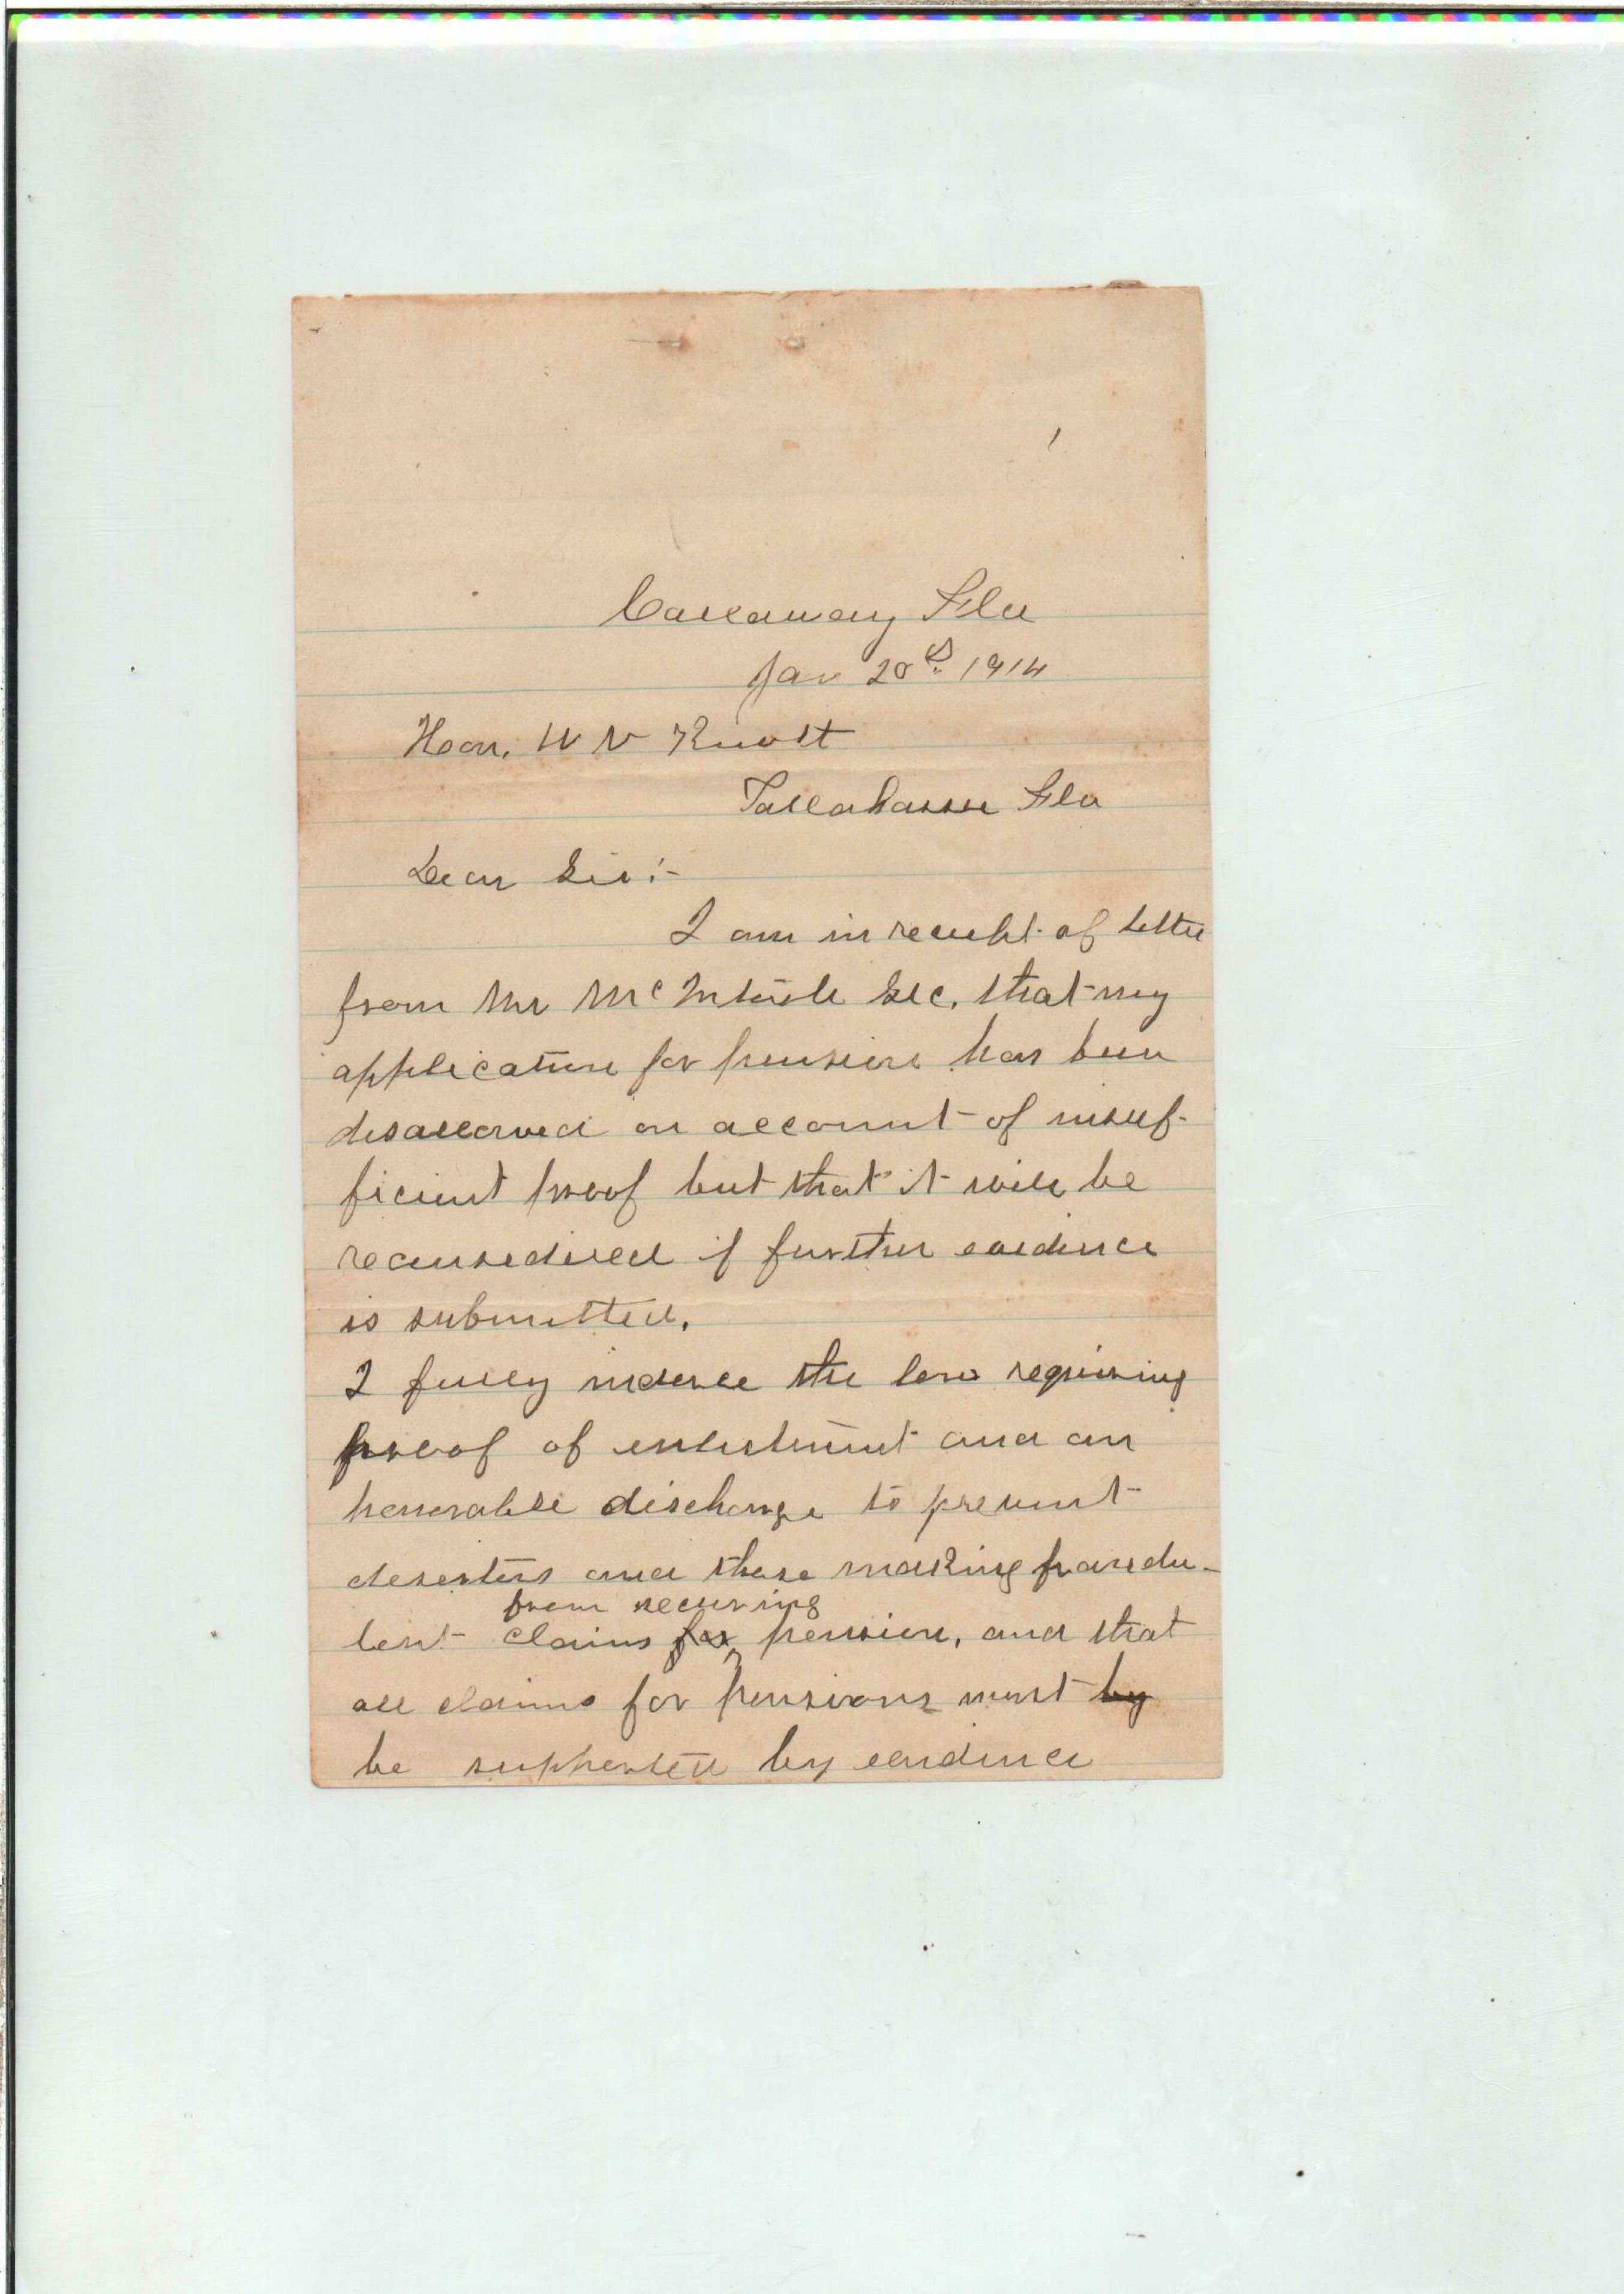 Callaway Fla
Jan 20th 1914
Hon. W V Knott
Tallahassee Fla
Dear Sir:-
I am in receipt of letter
from Mr McIntosh Sec. that my
application for pension has been
disallowed on account of insuf-
ficient proof but that it will be
reconsidered if further evidence
is submitted.
I fully indorse the law requiring
proof of enlistment and an
honorable discharge to prevent
deserters and those making fraudu-
from securing
lent claims for pension, and that
all claims for pensions must by
be supported by evidence